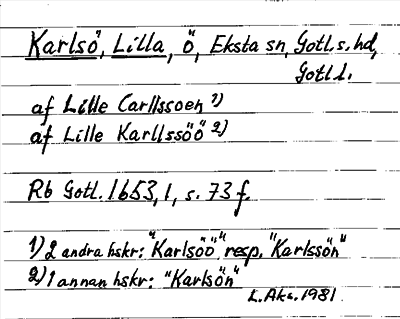 Karlsö, Lilla, ö, Eksta sn, Gotl. s. hd,
Gotl. l.
af Lille Carllssoen 1)
af Lille Karllssöö 2)
Rb Gotl. 1653, 1, s. 73 f.
1) 2 andra hskr: "Karlsöö" resp. "Karlssön"
2) 1 annan hskr: "Karlsön"
L. Aks. 1981